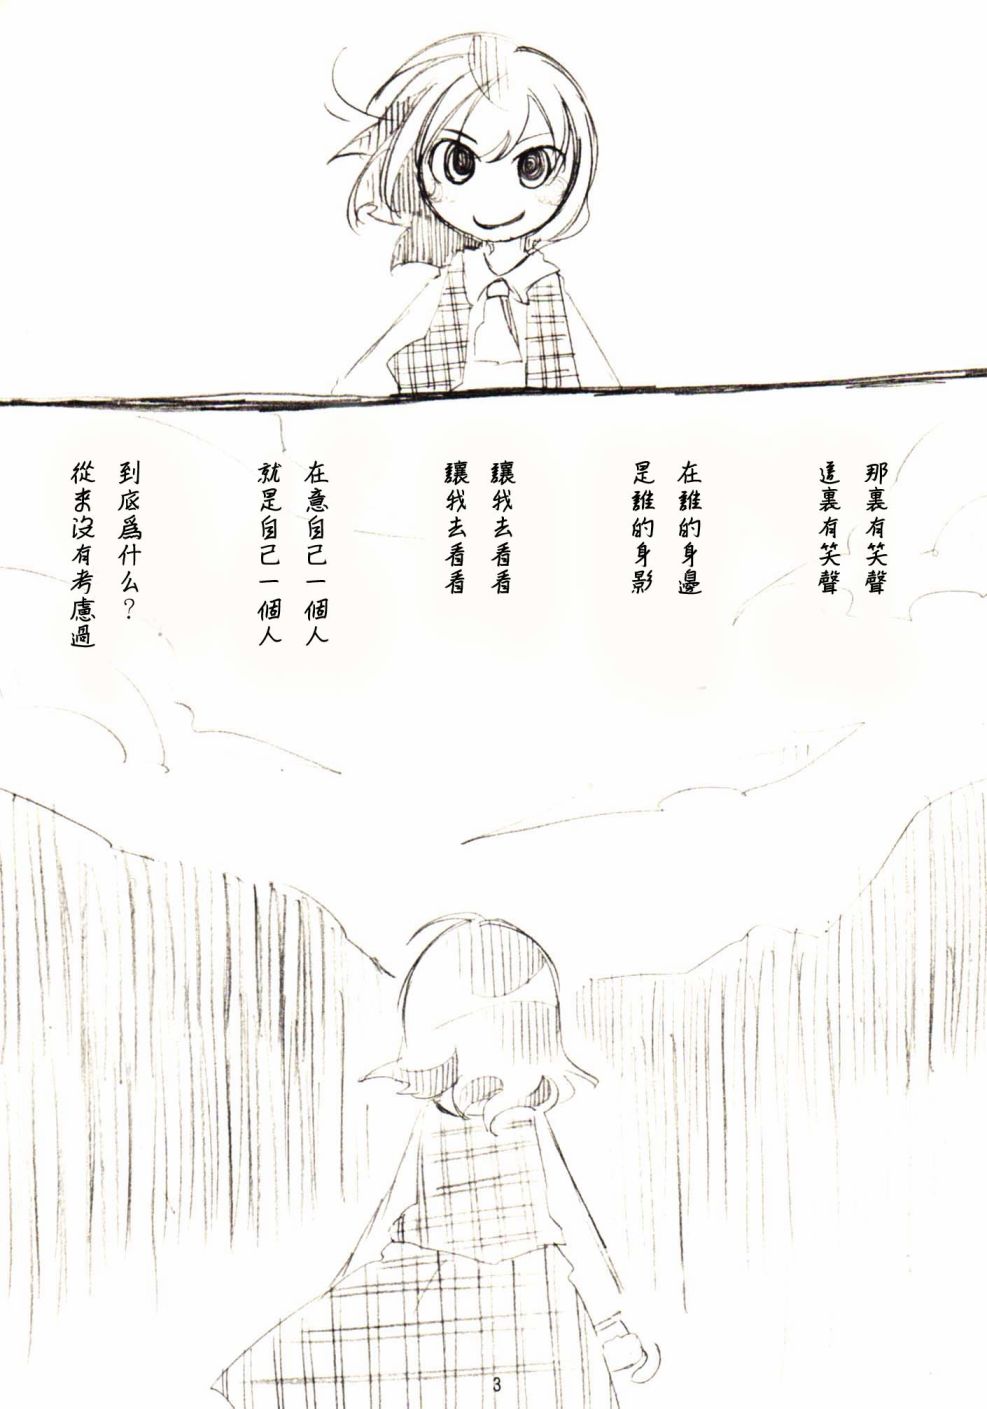 那裏有笑聲
這裏有笑聲
在誰的身邊
是誰的身影
讓我去看看
讓我去看看
在意自己一個人
就是自己一個人
到底爲什么？
從來沒有考慮過
3